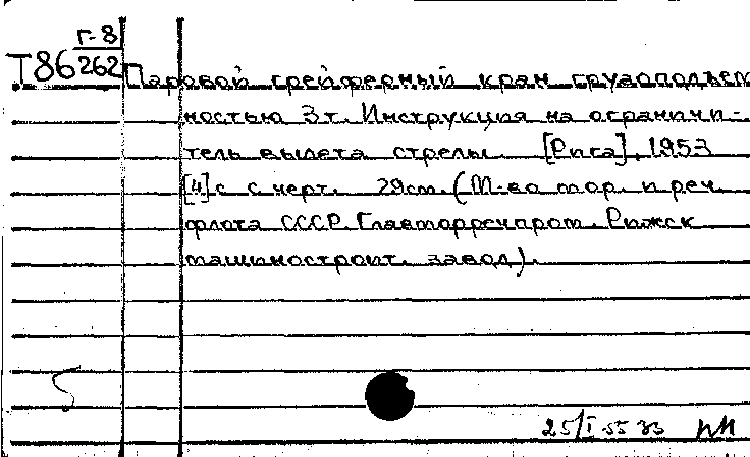 Г-8
Т86 262
Паровой грейферный кран грузоподъем
ностью 3т. Инструкция на ограничи-
тель вылета стрелы. [Рига], 1953
[4] с с черт. 29см. (М-во мор. и реч.
флота СССР. Главморречпром. Рижск
машиностроит. завод).
5
25/I-55